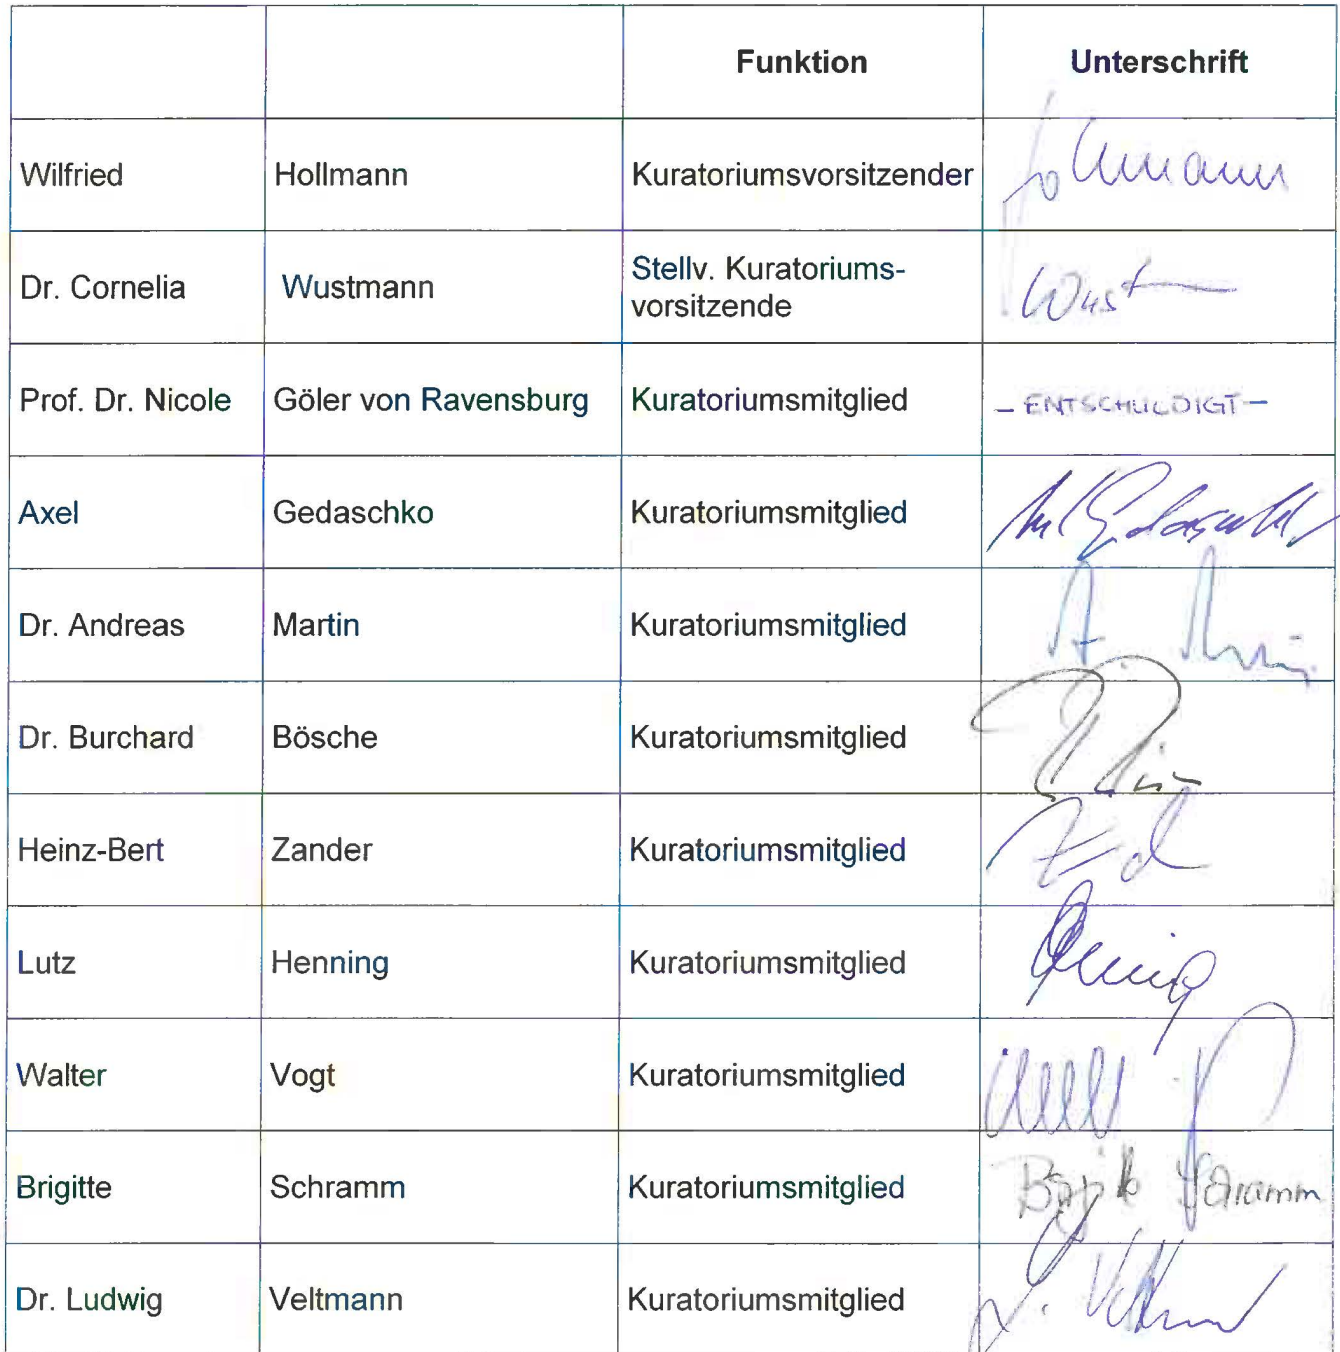 Funktion Unterschrift
Wilfried Hollmann Kuratoriumsvorsitzender Hollmann
Dr. Cornelia Wustmann Stellv. Kuratoriums-
vorsitzende Wust
Prof. Dr. Nicole Göler von Ravensburg Kuratoriumsmitglied - ENTSCHULDIGT -
Axel Gedaschko Kuratoriumsmitglied
Dr. Andreas Martin Kuratoriumsmitglied
Dr. Burchard Bösche Kuratoriumsmitglied
Heinz-Bert Zander Kuratoriumsmitglied
Lutz Henning Kuratoriumsmitglied
Walter Vogt Kuratoriumsmitglied
Brigitte Schramm Kuratoriumsmitglied Brigitte Schramm
Dr. Ludwig Veltmann Kuratoriumsmitglied